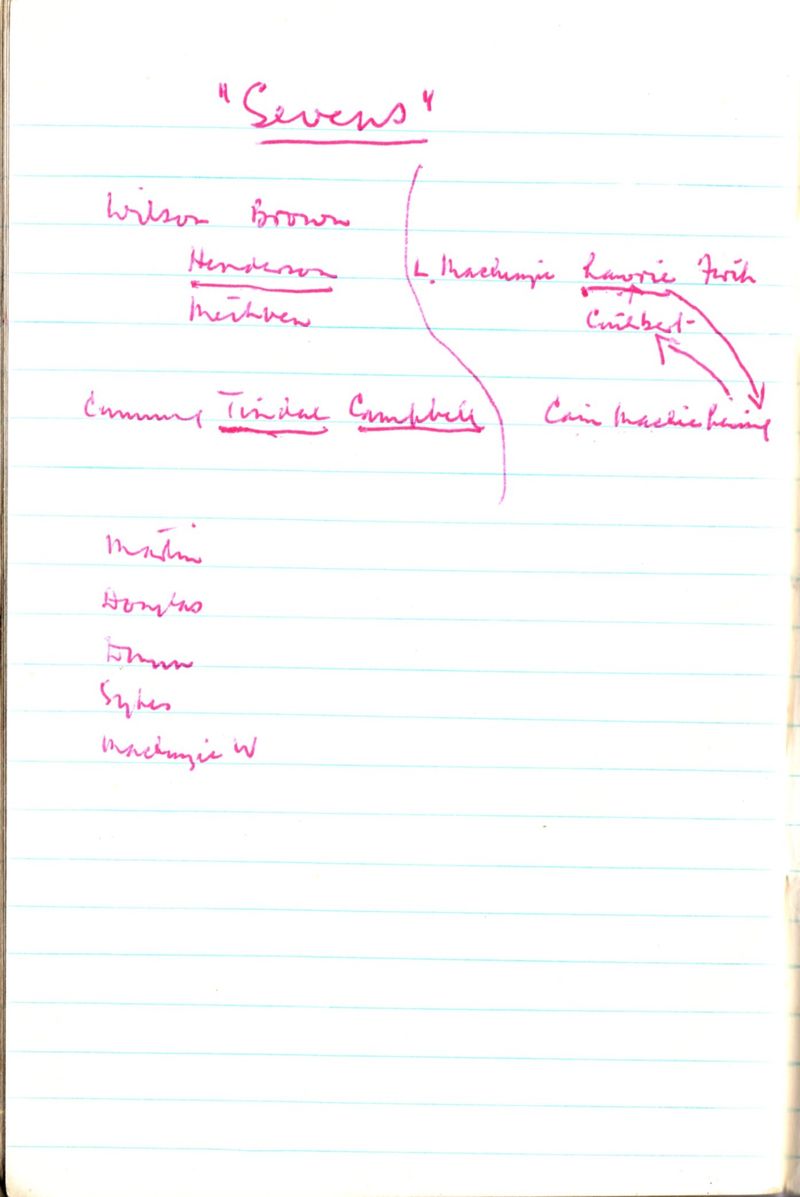 "Sevens"
Wilson Brown
Henderson
Methven
Cumming Tindal Campbell
L. Mackenzie Lawrie Firth
Cuthbert
Cain Mackie
Martin
Douglas
Dunn
Sykes
Mackenzie W